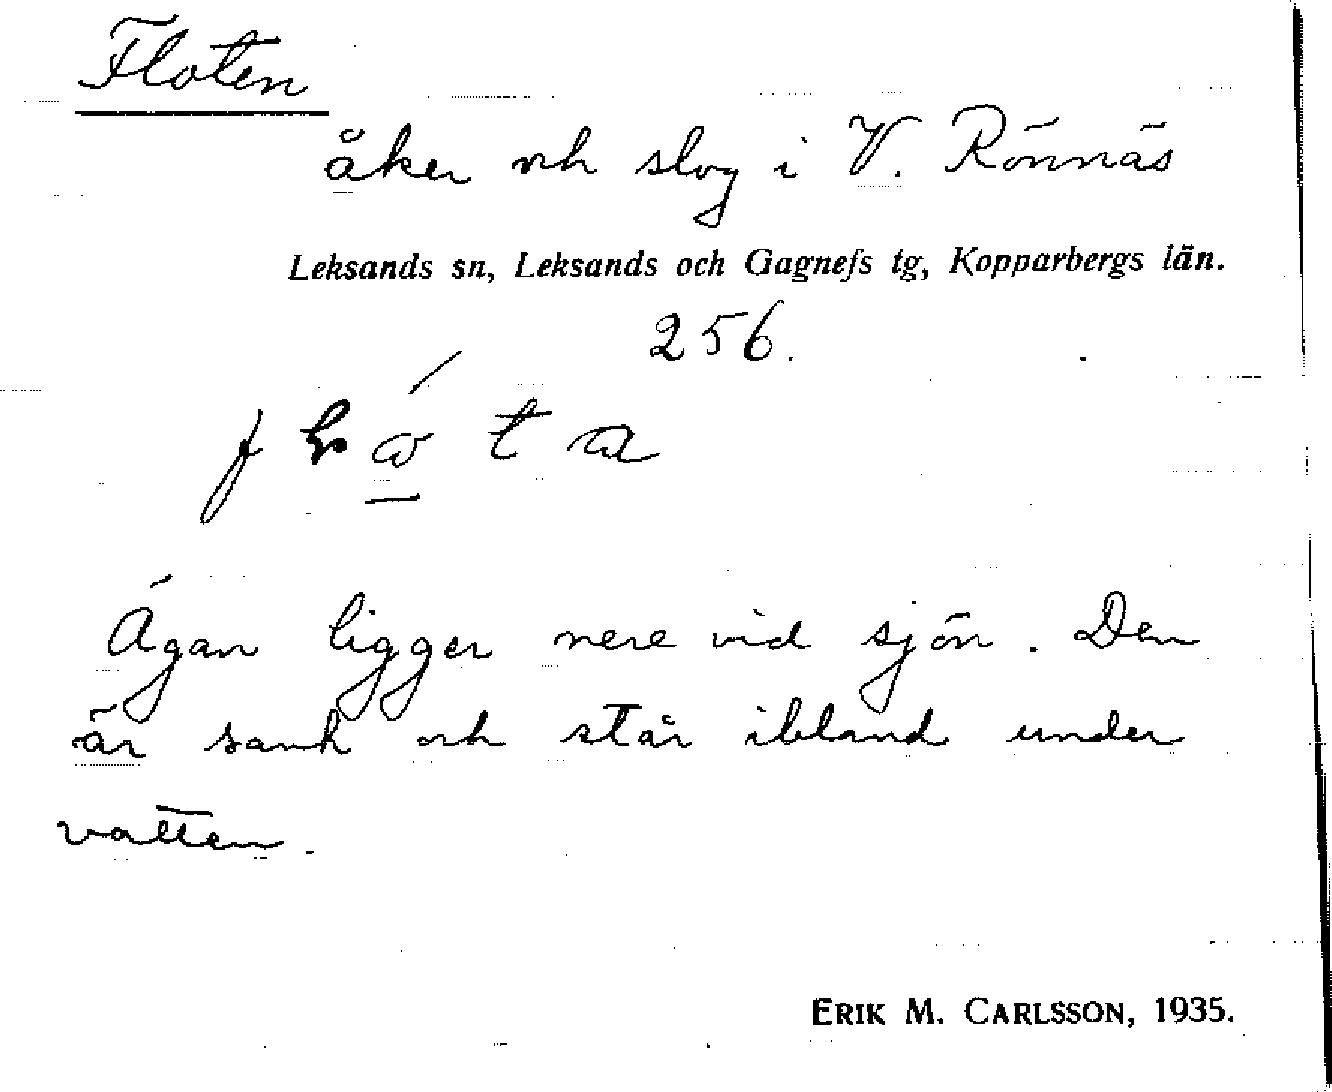 Floten
åker och slog i V. Rönnäs
Leksands sn, Leksands och Gagnefs tg, Kopparbergs län.
256.
Ägan ligger nere vid sjön. Den
är sank och står ibland under
vatten.
ERIK M. CARLSSON, 1935.